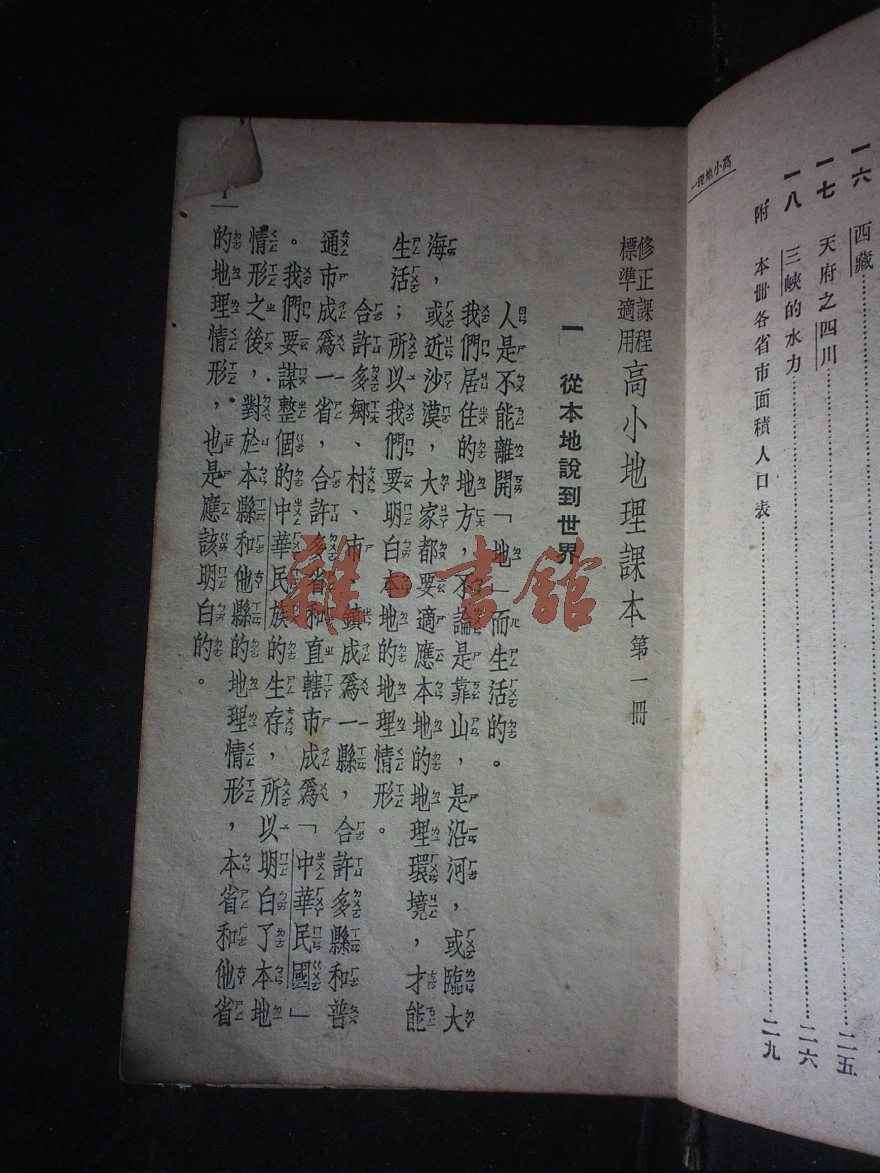 高小地理一
一六 西藏
一七 天府之四川 二五
一八 三峽的水力 二六
附 本册各省市面積人口表 二九
修正課程標準適用 高小地理課本 第一冊
一 從本地說到世界
人是不能離開「地」而生活的。
我們居住的地方，不論是靠山，是沿河，或臨大
海，或近沙漠，大家都要適應本地的地理環境，才能
生活；所以我們要明白本地的地理情形。
合許多鄉、村、市、鎮成爲一縣，合許多縣和普
通市成爲一省，合許多省和直轄市成爲「中華民國」
。我們要謀整個的中華民族的生存，所以明白了本地
情形之後，對於本縣和他縣的地理情形，本省和他省
的地理情形，也是應該明白的。
1
雜·書館